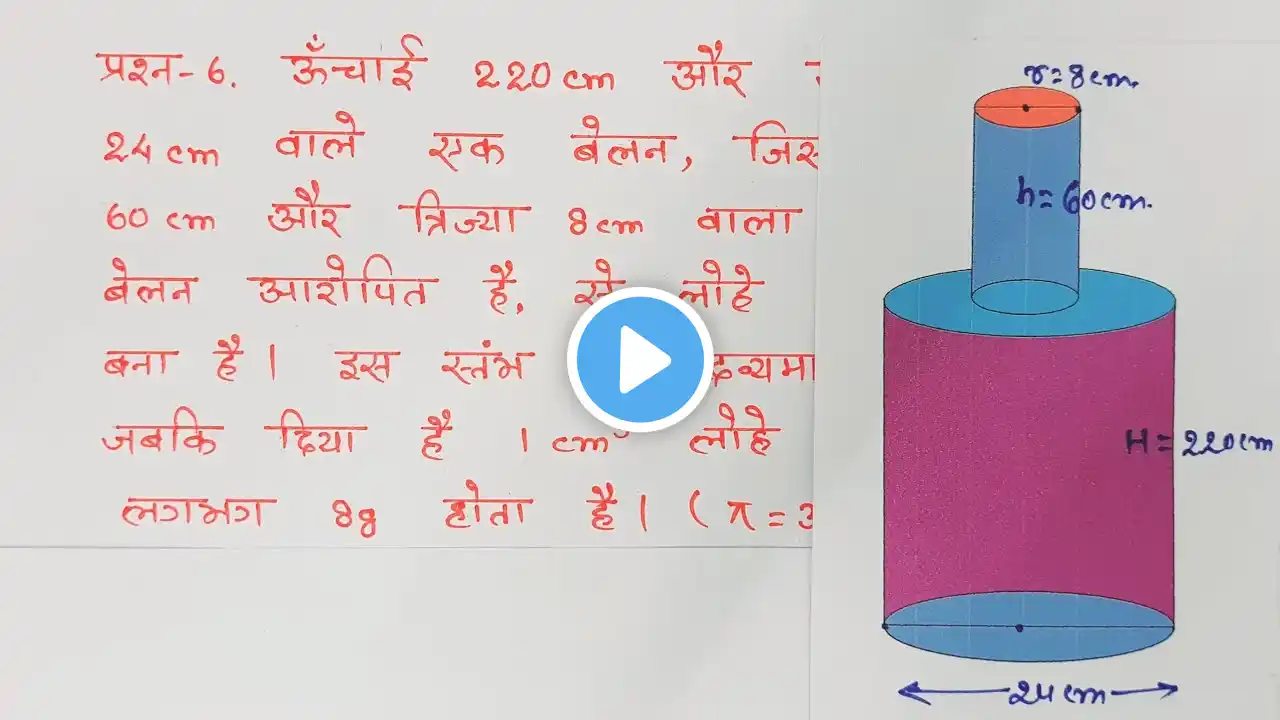 प्रश्न-6. ऊँचाई 220 cm और
24 cm वाले एक बेलन,
60 cm और त्रिज्या 8 cm वाला
बेलन आरोपित है, से लोहे
बना है। इस स्तंभ
जबकि दिया है 1 cm³ लोहे
लगभग 8g होता है। (π =
r = 8 cm.
h = 60 cm.
H = 220 cm
24 cm